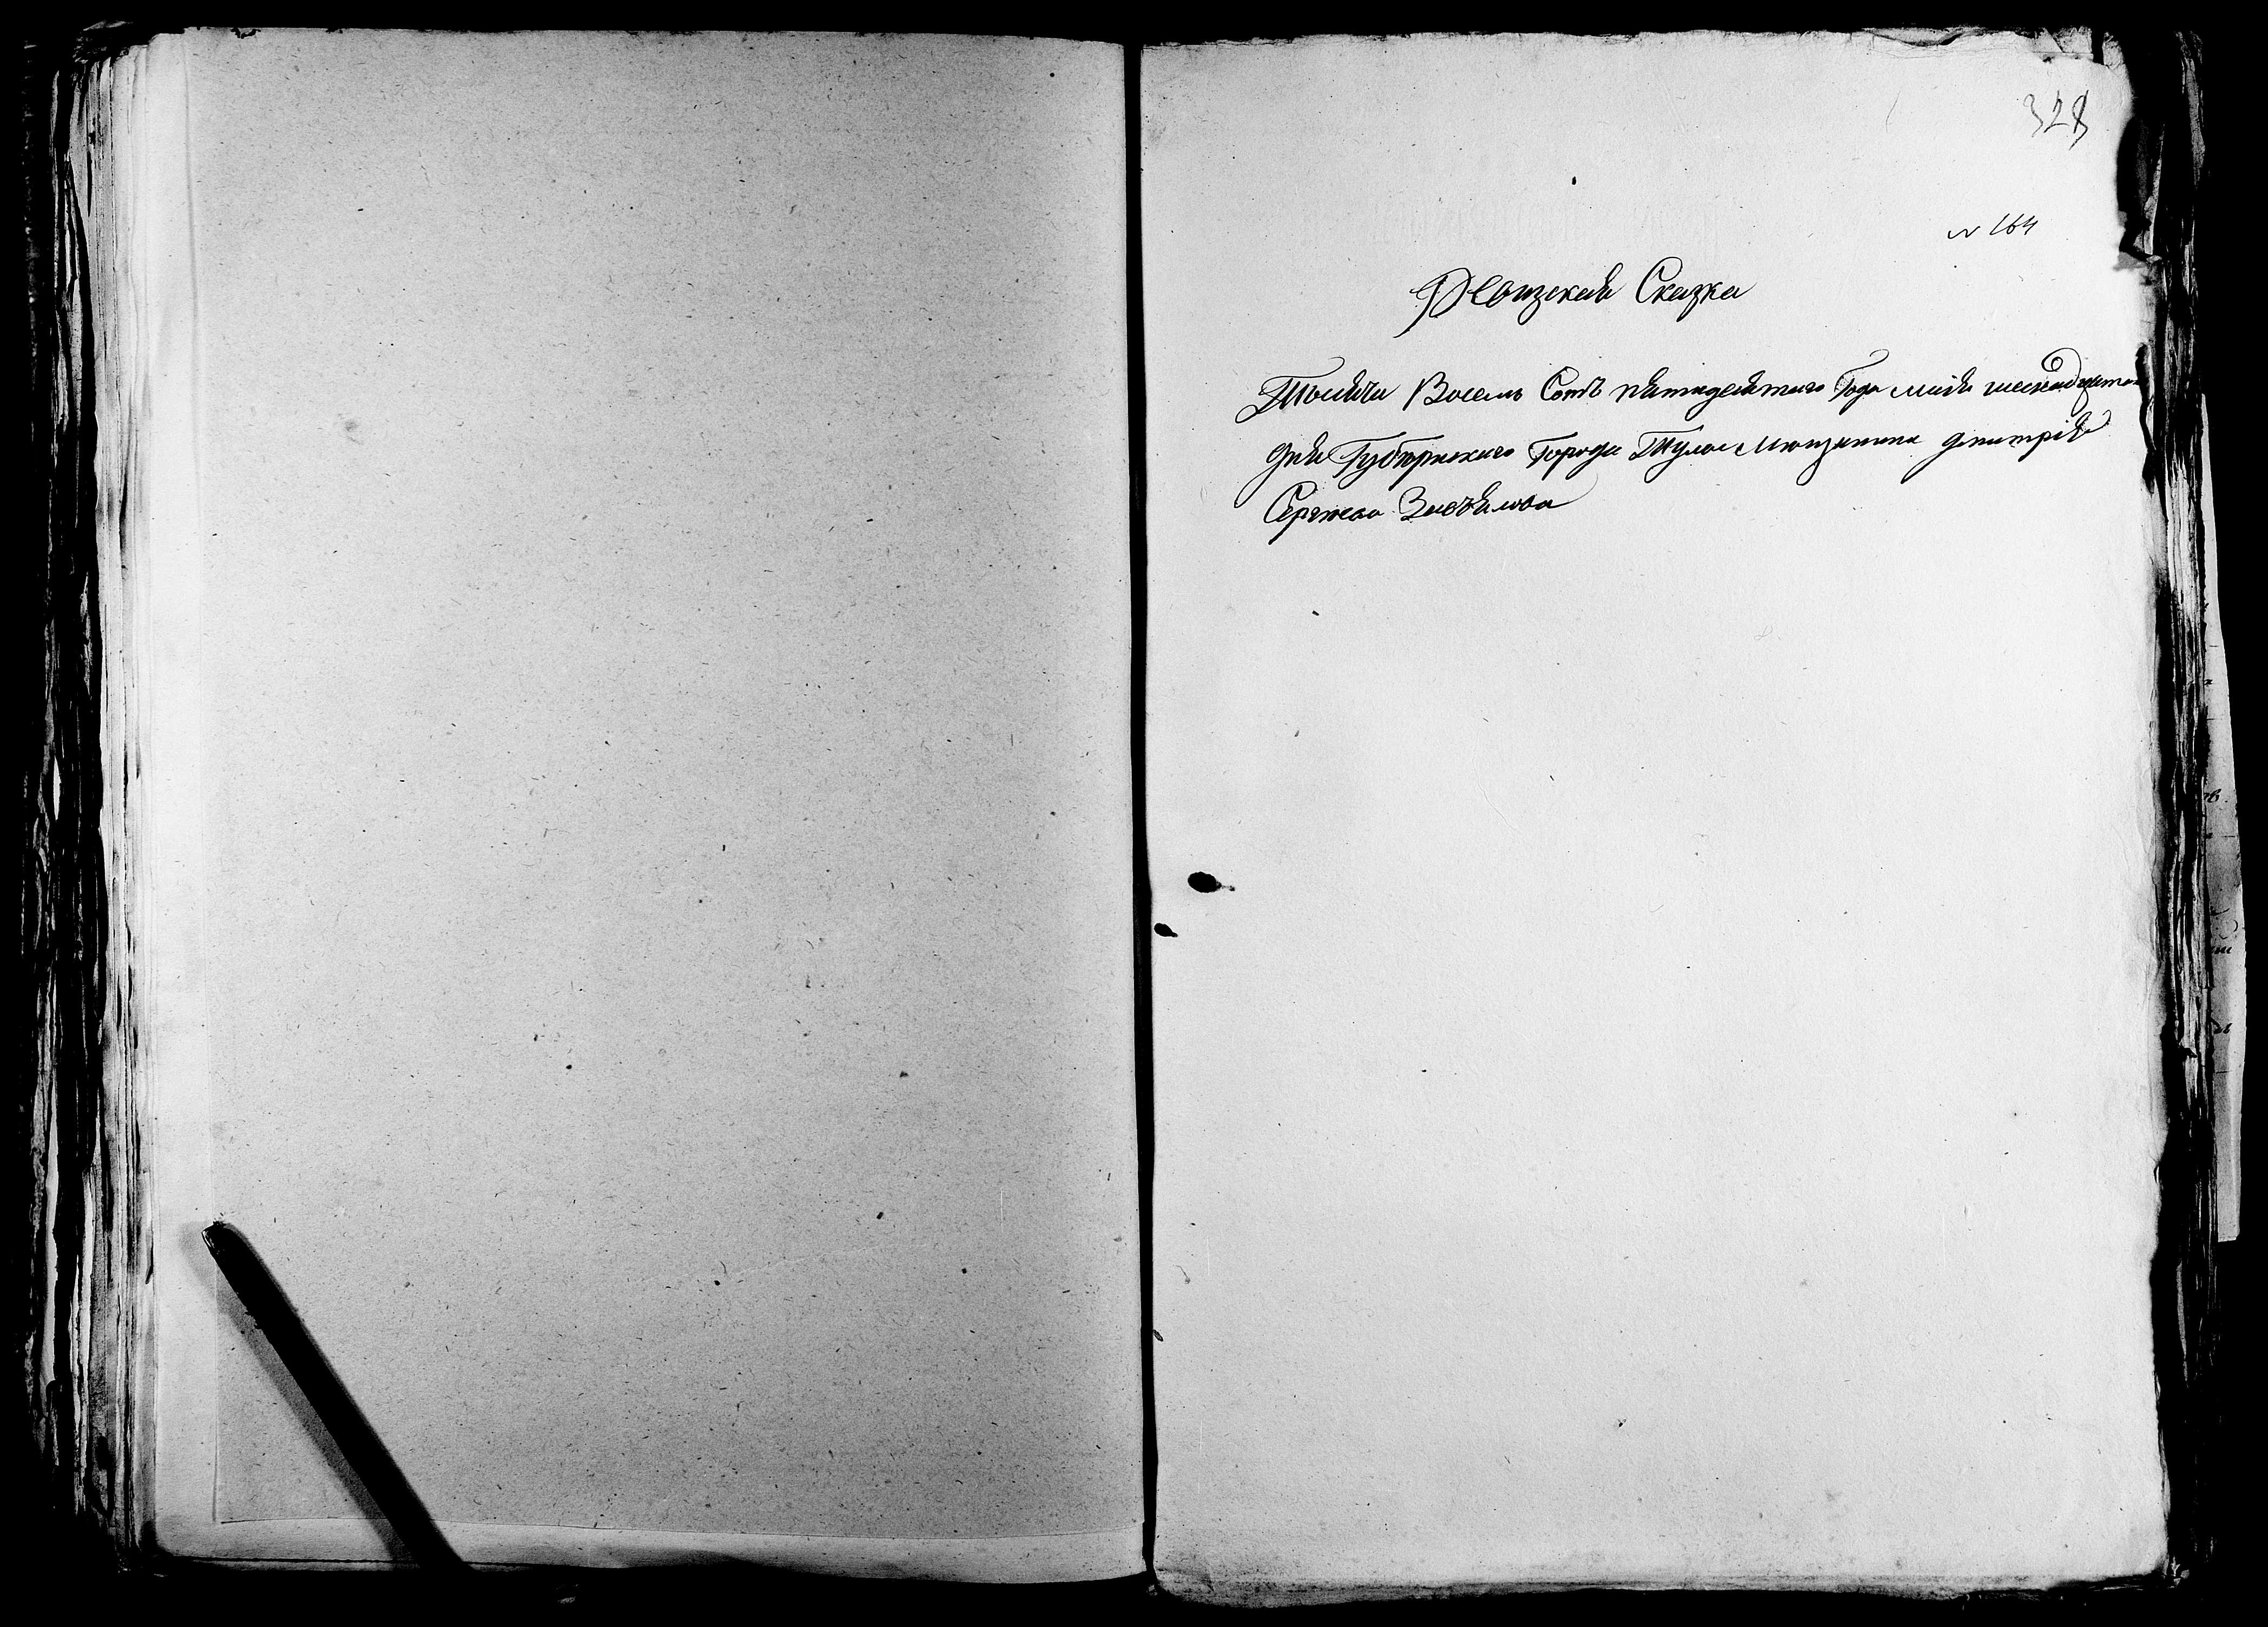 328
№ 164
Ревизская Сказка
Тысяча Восемь Сотъ пятидесятаго Года маія шеснадцатаго
дня Губернскаго Города Тулы Мещанина дмитрія
Сергеева